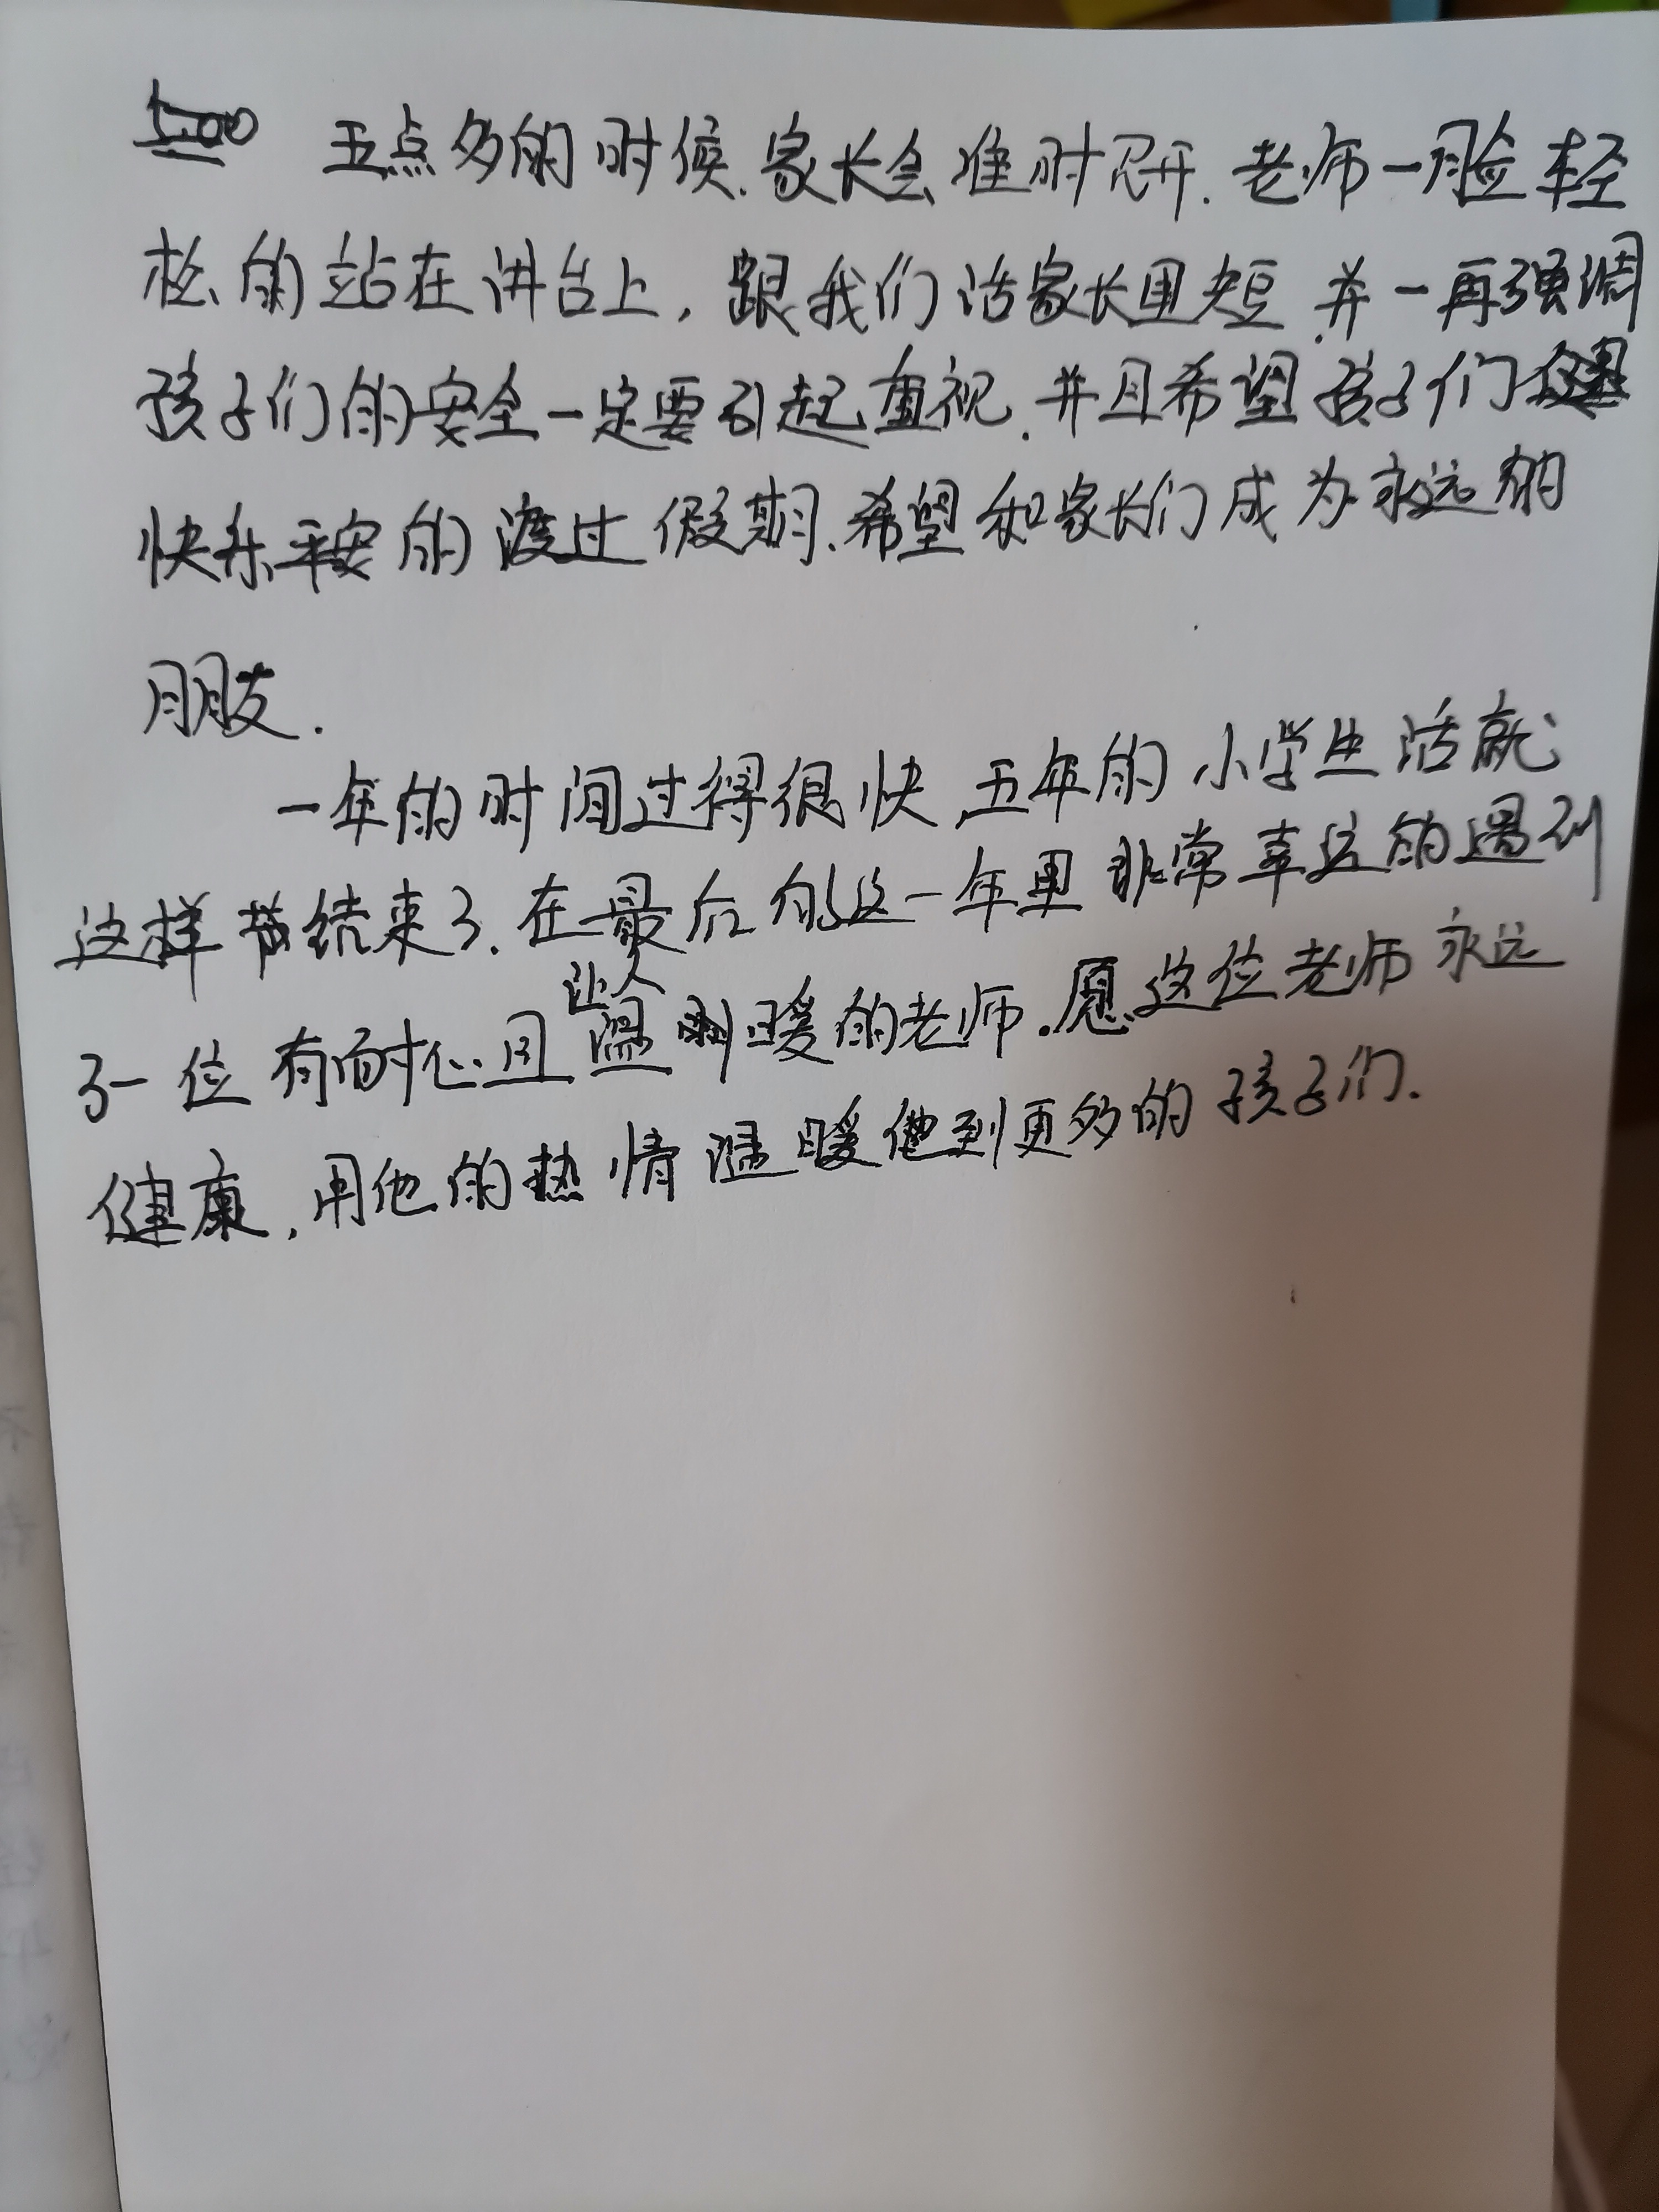 五点多的时候.家长会准时召开.老师一脸轻
松的站在讲台上,跟我们话家长里短.并一再强调
孩子们的安全一定要引起重视.并且希望孩子们
快乐平安的渡过假期.希望和家长们成为永远的
朋友.
一年的时间过得很快.五年的小学生活就
这样结束了.在最后的这一年里非常幸运的遇到
了一位有耐心且让人温暖的老师.愿这位老师永远
健康,用他的热情温暖到更多的孩子们.